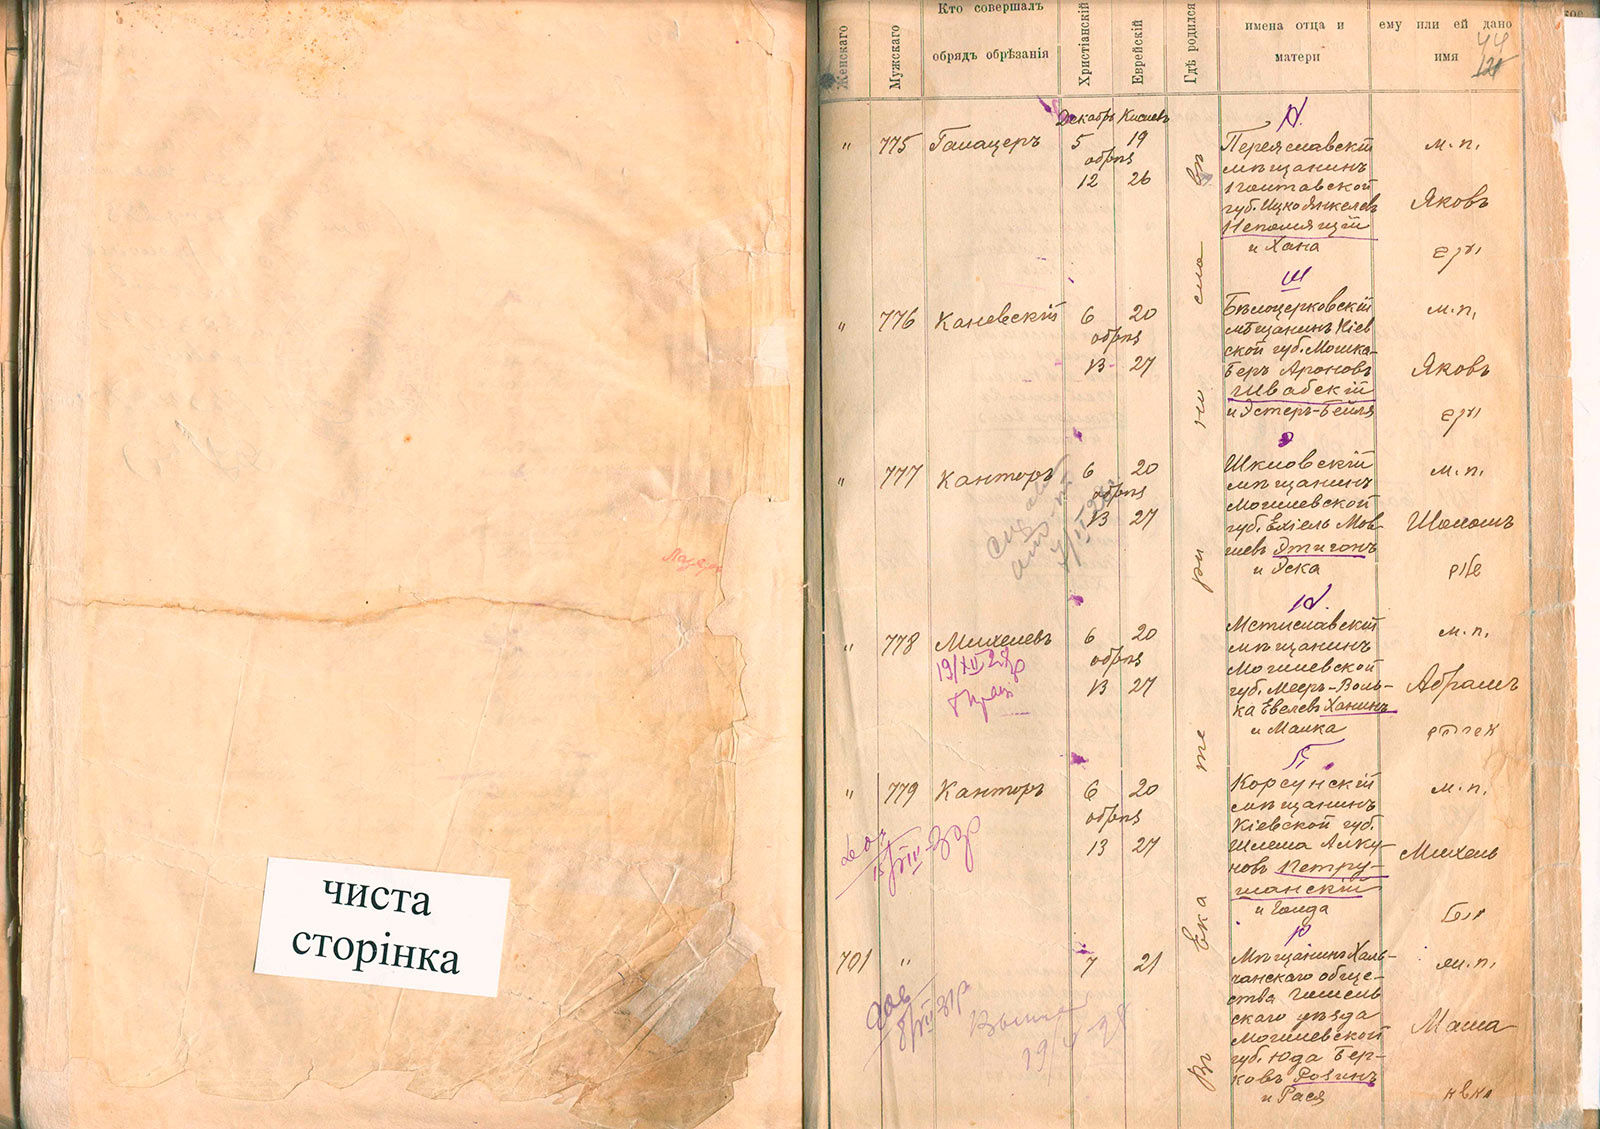 чиста
сторінка
Женскаго
Мужскаго
Кто совершалъ
обрядъ обрѣзанія
Христіанскій
Еврейскій
Гдѣ родился
имена отца и
матери
ему или ей дано
имя
44
Декабрь Кислевъ
" 775 Галацеръ 5 19
обрѣз
12 26
Переяславскій
мѣщанинъ
Полтавской
губ. Ицко Янкелевъ
Непомнящій
и Хана
м.п.
Яковъ
יעקב
" 776 Каневскій 6 20
обрѣз
13 27
Бѣлоцерковскій
мѣщанинъ Кіев
ской губ. Мошка-
Беръ Ароновъ
Швабскій
и Эстеръ-Бейля
м.п.
Яковъ
יעקב
" 777 Канторъ 6 20
обрѣз
13 27
Шкловскій
мѣщанинъ
Могилевской
губ. Ехіель Мов-
шевъ Этигонъ
и Эска
м.п.
Шоломъ
" 778 Михелевъ 6 20
обрѣз
13 27
Мстиславскій
мѣщанинъ
Могилевской
губ. Мееръ-Воль-
ка Евелевъ Ханинъ
и Малка
м.п.
Абрамъ
" 779 Канторъ 6 20
обрѣз
13 27
Корсунскій
мѣщанинъ
Кіевской губ.
Шлема Алку-
новъ Петру-
шанскій
и Голда
м.п.
Михель
701 " 7 21
Мѣщанинъ Халь-
чанскаго обще-
ства Гомель
скаго уѣзда
Могилевской
губ. Юда Бер-
ковъ Розинъ
и Рася
Маша
Въ Екатеринославѣ